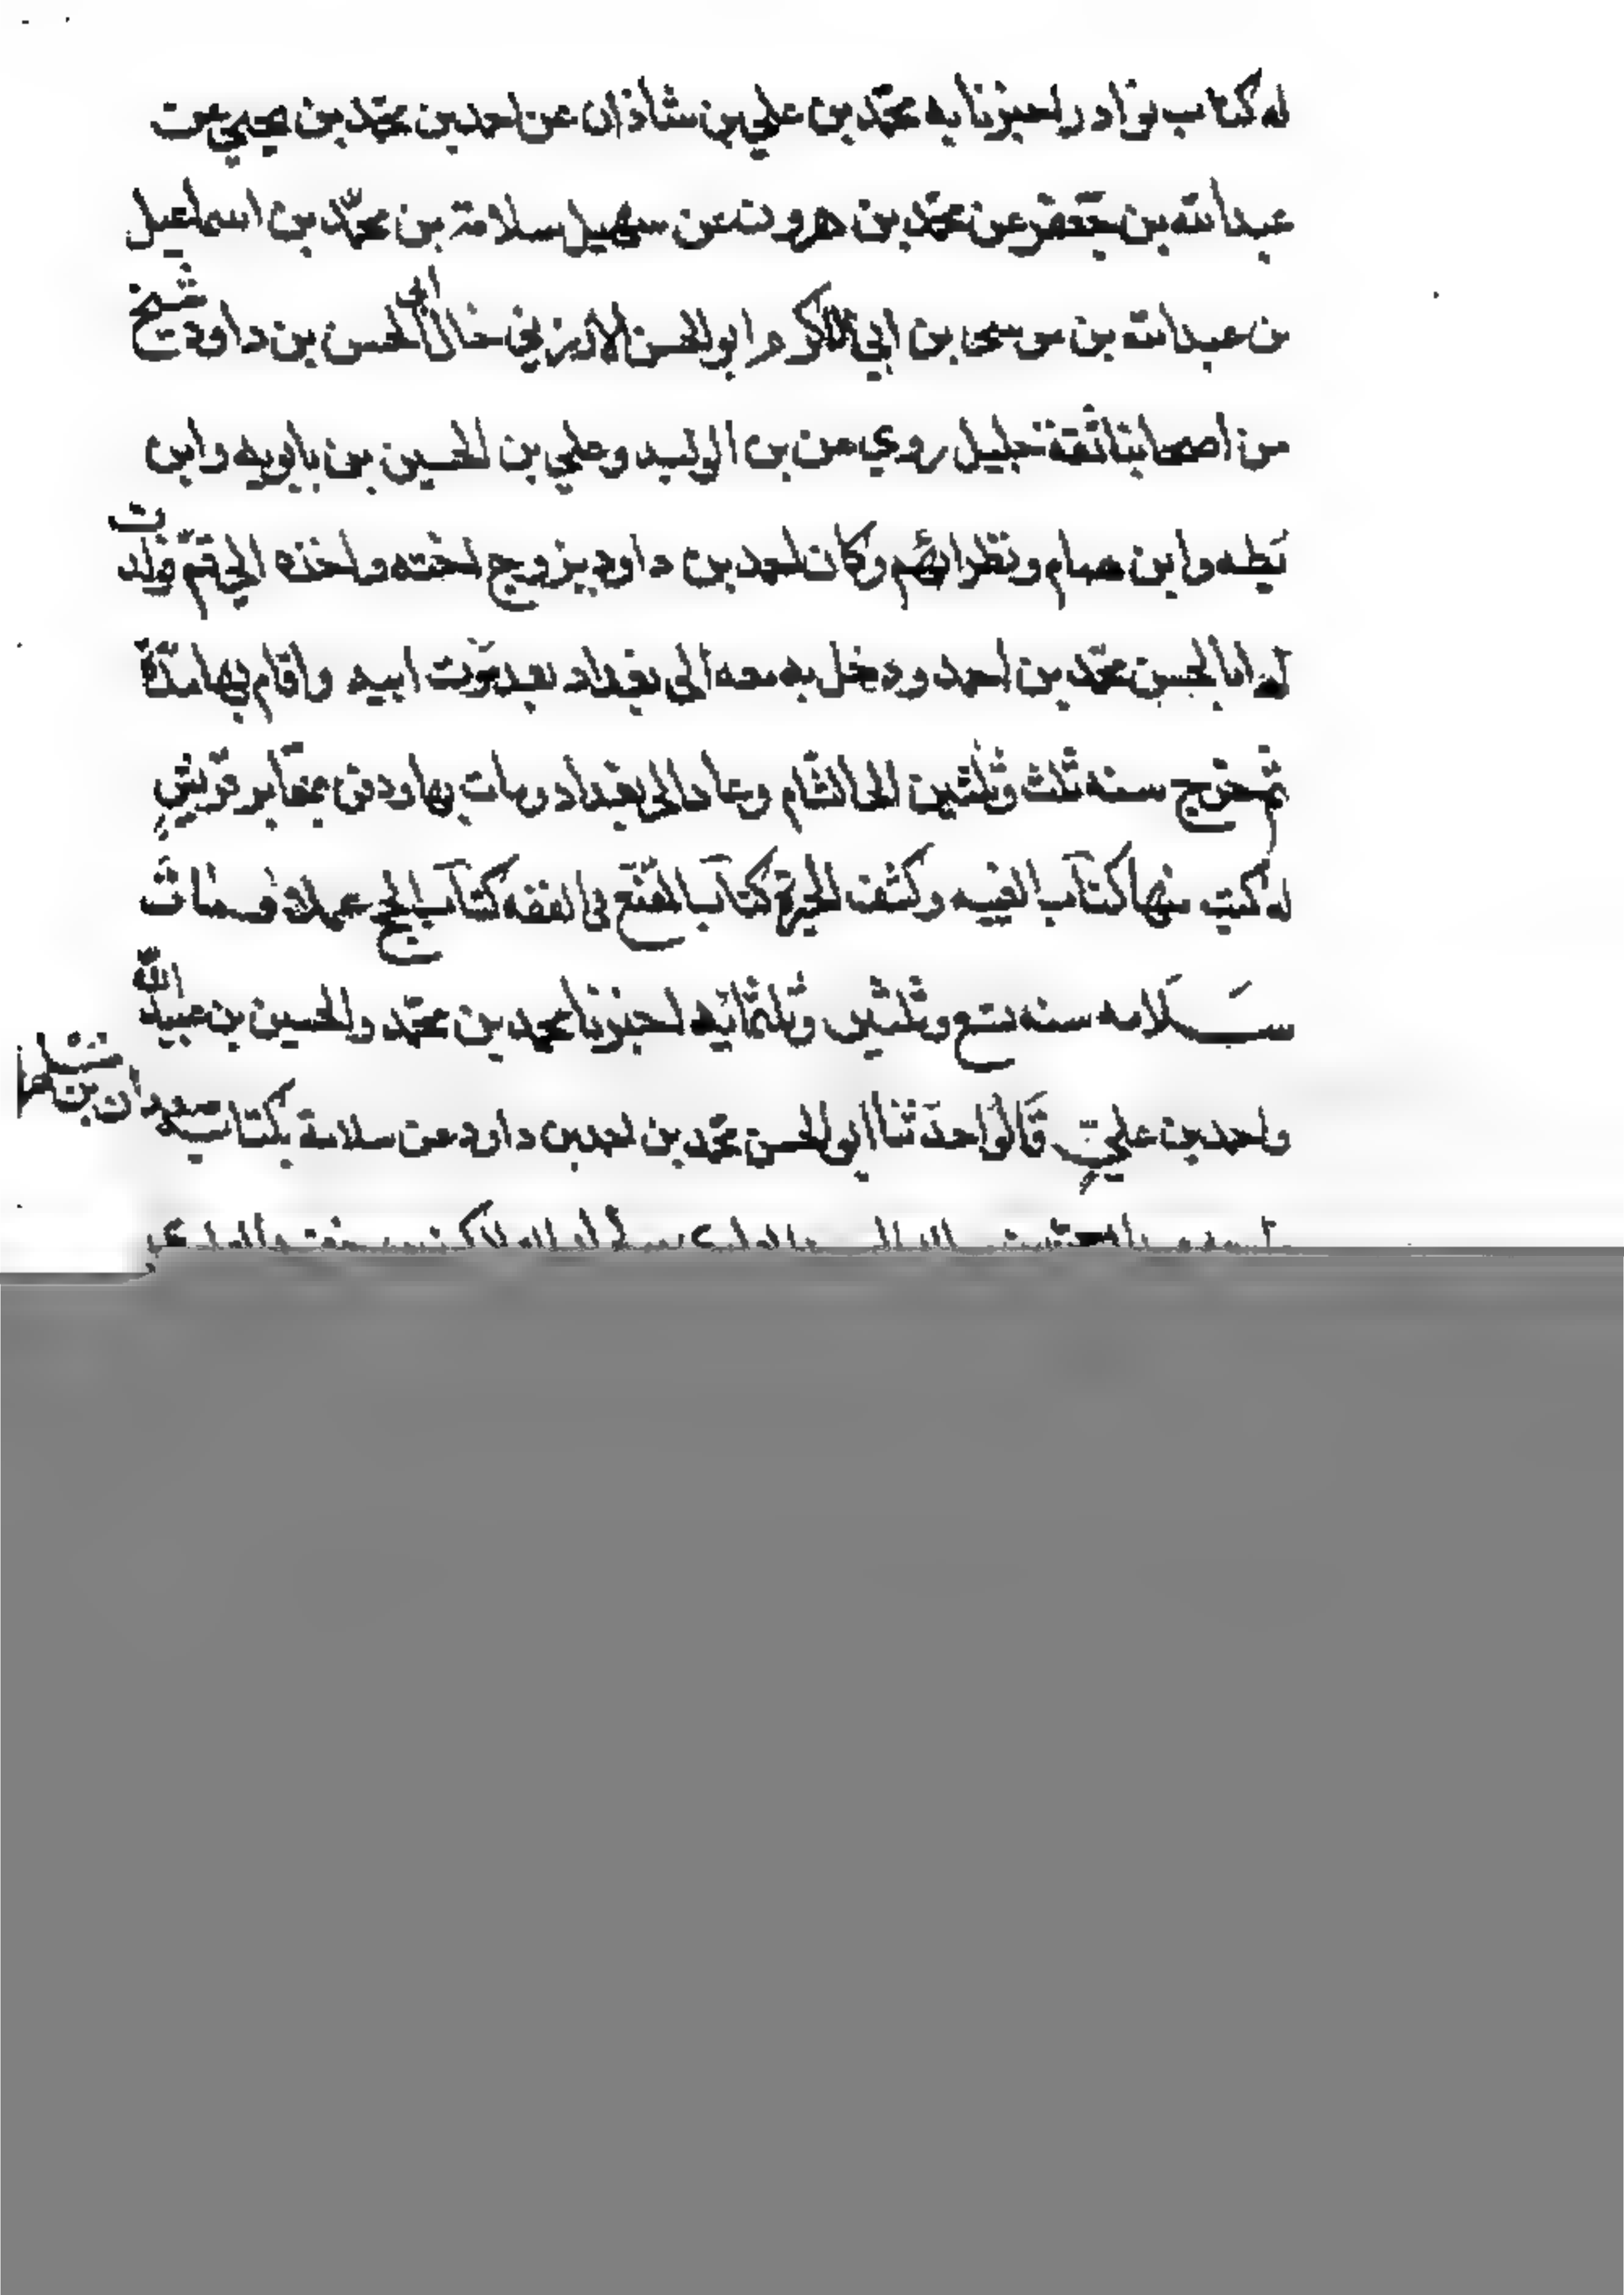 له كتاب نوادر اخبرنا به محمد بن علي بن شاذان عن احمد بن محمد بن يحيي عن
عبدالله بن جعفر عن محمد بن هرون عن سهيل سلامة بن محمد بن اسمعيل
بن عبدالله بن موسى بن ابي الاكرم ابوالحسن الارزني خال ابي الحسن بن داود شيخ
من اصحابنا ثقة جليل روي عن بن الوليد وعلي بن الحسين بن بابويه وابن
بطه وابن همام ونظرائهم وكان احمد بن داود يزوج اخته واخذه الي قم فولدت
له ابا الحسن محمد بن احمد ودخل به معه الى بغداد بعد موت ابيه واقام بها مدّة
ثم خرج سنه ثلث وثلثين الى الشام وعاد الى بغداد ومات بها ودفن بمقابر قريش
له كتب منها كتاب الغيبه وكشف الحيرة كتاب المقنع في الفقه كتاب الحج عملا ومات
سلامه سنه تسع وثلثين وثلثمائه اخبرنا محمد بن محمد والحسين بن عبيدالله
واحمد بن علي قالوا حدثنا ابوالحسن محمد بن احمد بن داود عن سلامة بكتابه